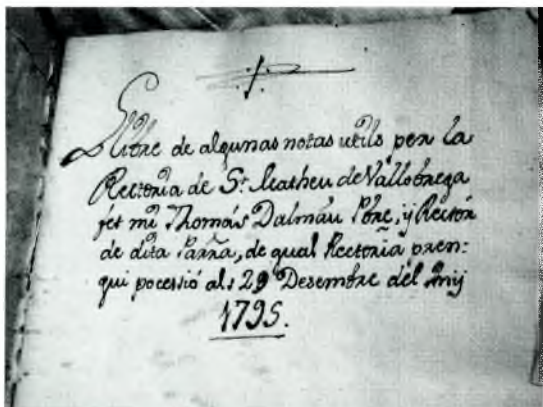 Llibre de algunas notas utils per la
Rectoria de St. Matheu de Vallobrega
fet mi Thomás Dalmáu Pbre, y Rector
de dita Parrã, de qual Rectoria pren:
gui pocessió als 29 Desembre del Any
1795.